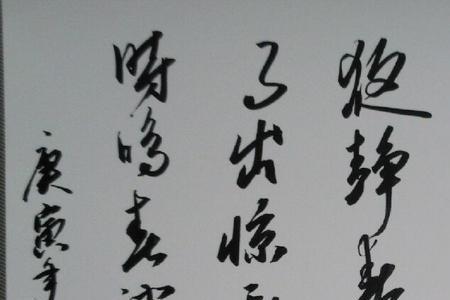 夜静春
月出惊
時鸣春
庚寅年